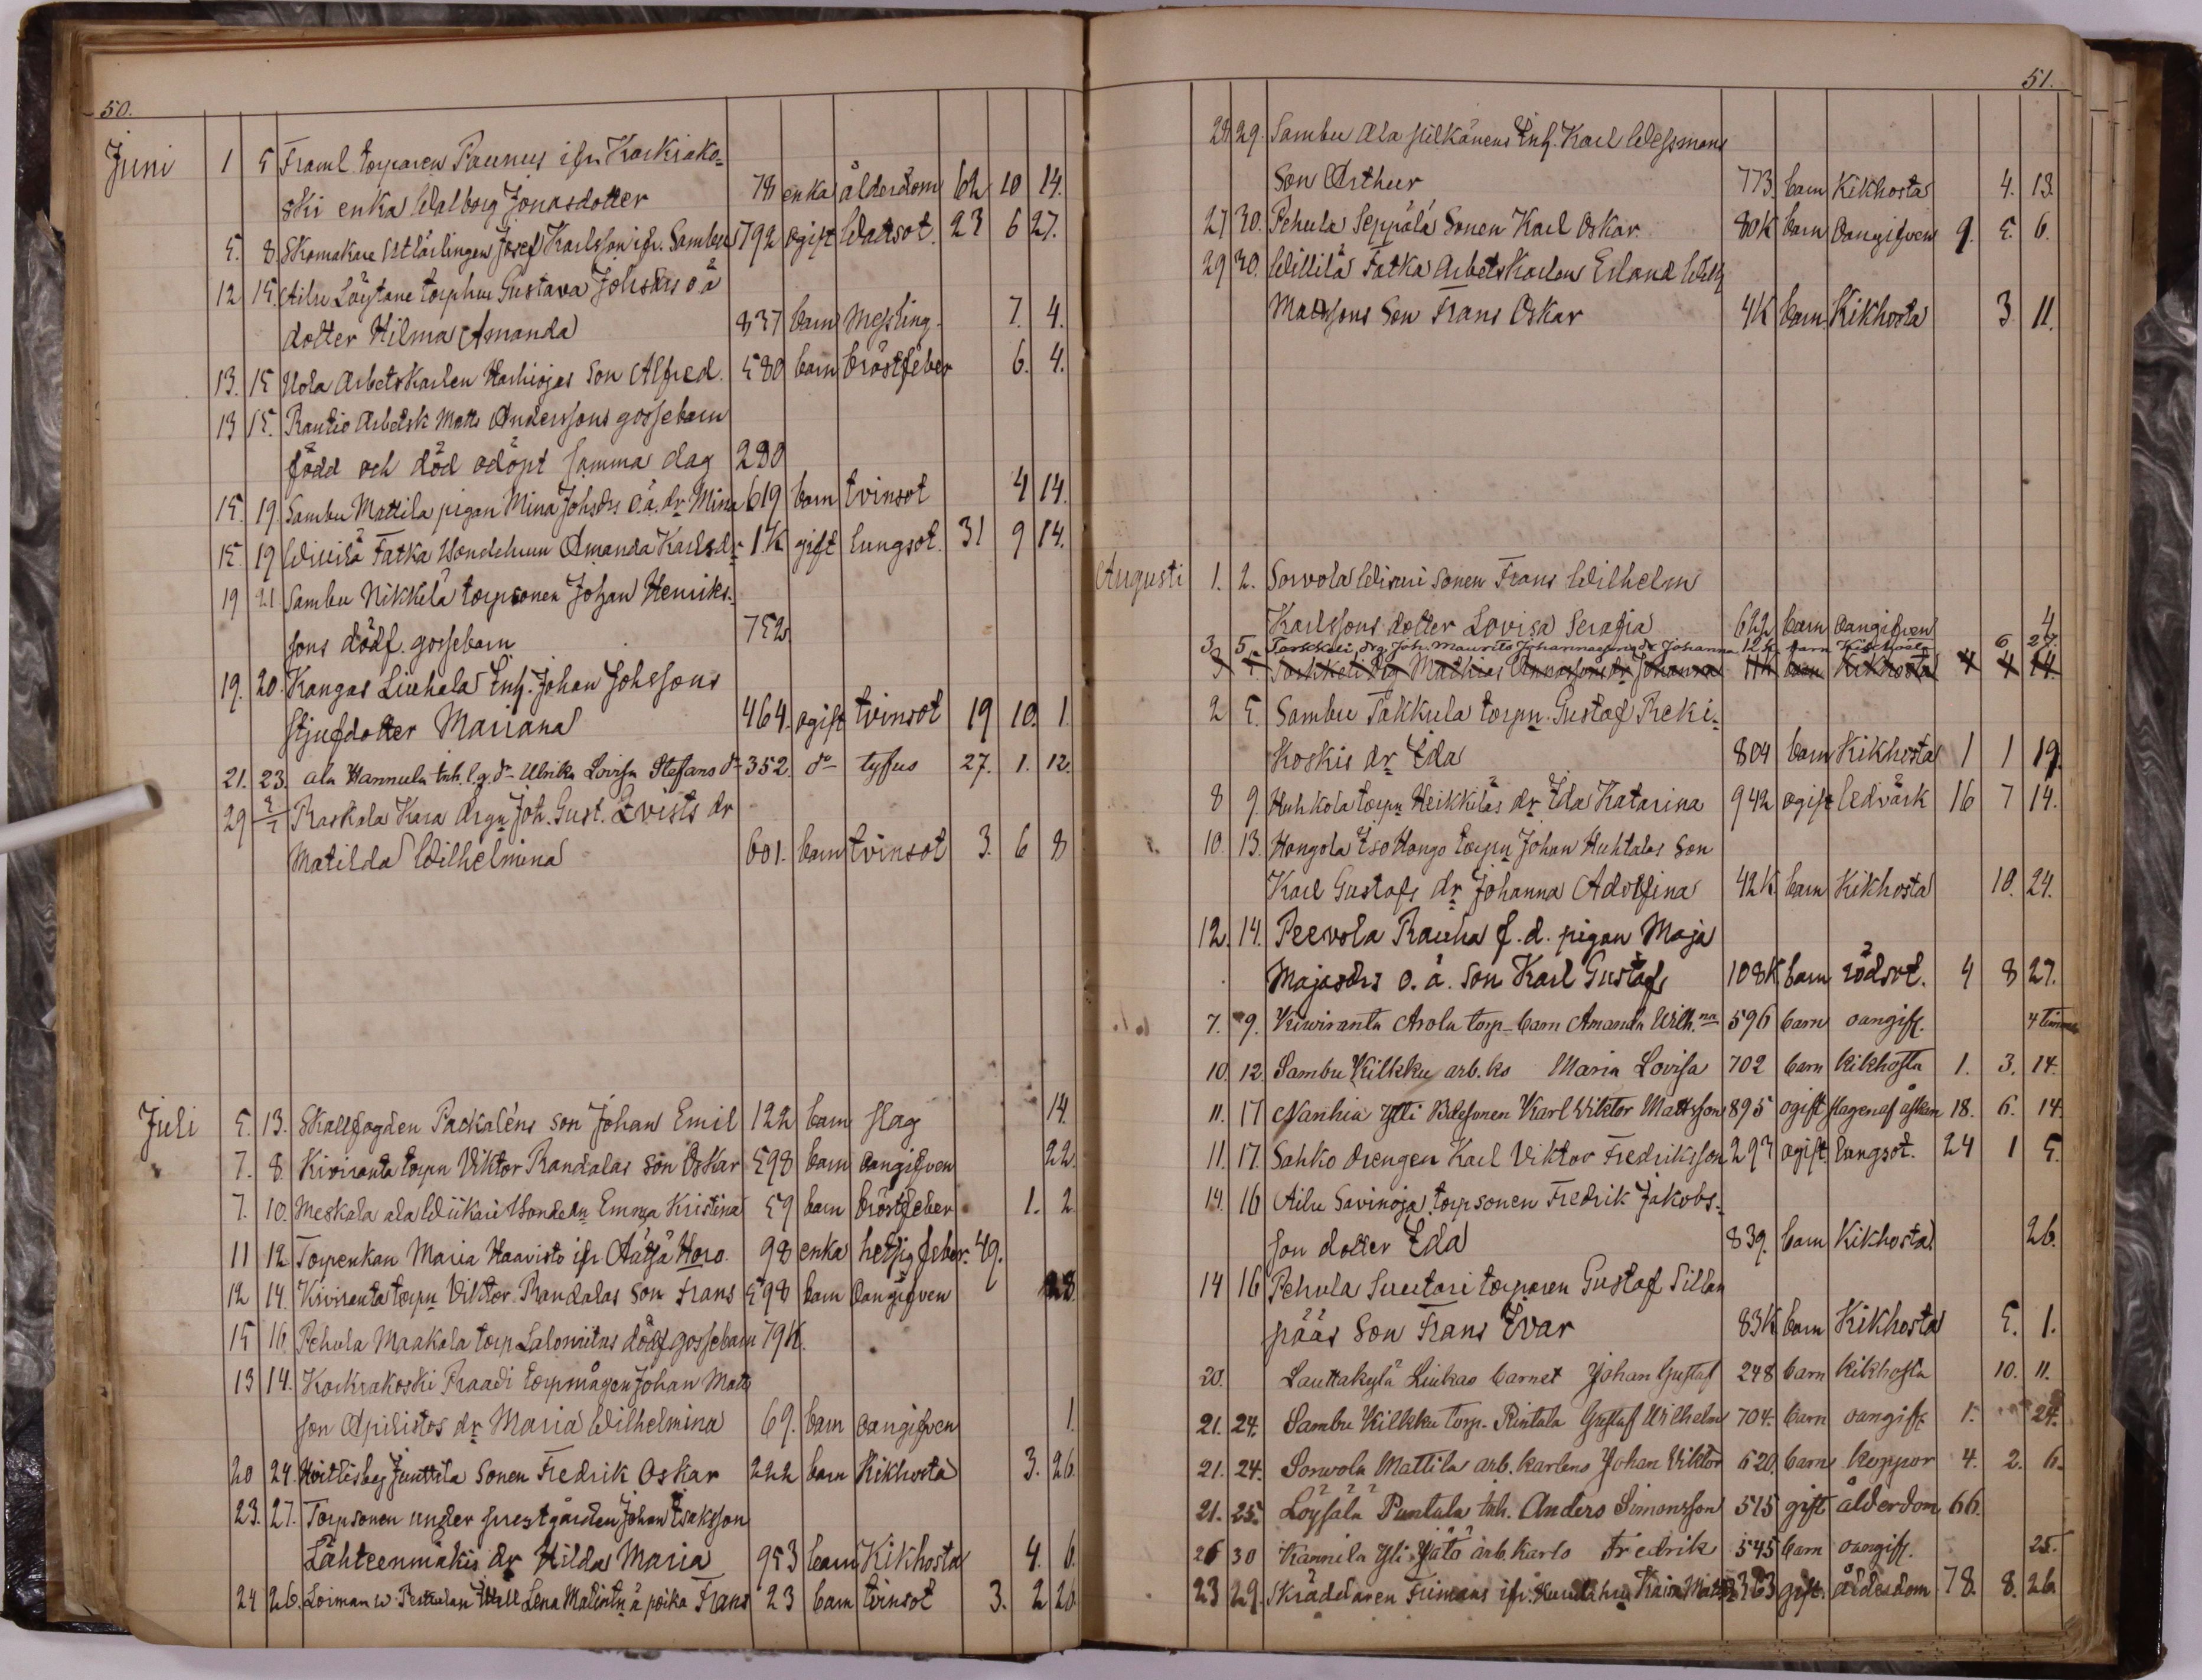 50.
Juni 1 5 Framl. torparen Paunus ifr. Karkiako=
ski enka Walborg Jonasdotter 78 enka ålderdom 62 10 14.
5. 8. Skomakare Josef Karlsson ifr. Sambu 792 ogift Wattsot. 23 6 27.
12 15. Ailu Löytane torphus Gustava Johsdrs o ä
dotter Hilma Amanda 837 barn Messling. 7. 4.
13. 15 Uola Arbetskarlen Harhiojas Son Alfred. 580 barn bröstfeber 6. 4.
13 15. Rautio Arbetsk Matts Anderssons gossebarn
född och död odöpt samma dag 290
15. 19. Sambu Mattila pigan Mina Johsdrs o.ä. dr Mina 619 barn tvinsot 4 14.
15. 19 Willilä Fatka Amanda Karlsdr 1.K gift lungsot. 31 9 14.
19 21 Sambu Nikkilä torpsonen Johan Henriks-
sons dödf. gossebarn 752
19. 20. Kangas Liuhala Inh. Johan Johssons
stjufdotter Mariana 464. ogift tvinsot 19 10. 1.
21. 23. ala Hannula inh. l.g. dr Ulrika Lovisa Stefans dr 352. do tyfus 27. 1. 12.
29 2/7 Raskala Kara drgn Joh. Gust. Qvists dr
Matilda Wilhelmina 601. barn tvinsot 3. 6 8
Juli 5. 13. Skallfogden Packaléns son Johan Emil 122 barn slag 14.
7. 8. Kiviranta torpn Viktor Randalas son Oskar 598 barn oangifven 22.
7. 10. Meskala ala Wiikari Emma Kristina 59 barn bröstfeber 1. 2
11 12 Torpenkan Maria Haavisto ifr Äätsä Horo. 98 enka hetsig feber. 49.
12 14. Kiviranta torpn Viktor Randalas Son Frans 598 barn oangifven 28
15 16. Pehula Maakola torp Salomitas dödf gossebarn 79K.
13 14. Karkiakoski Raadi torpmågen Johan Matts
son Apilistos dr Maria Wilhelmina 69. barn oangifven 1.
20 24. Hvitlisbej Junttila Sonen Fredrik Oskar 222 barn Kikhosta 3. 26.
23. 27. Torpsonen under prestgården Johan Isaksson
Lähteenmäkis dr Hilda Maria 953 barn Kikhosta 4. 6.
24 26. Loiman w. Lena oä poika Frans 23 barn tvinsot 3. 2 20
51.
28 29. Sambu Ala Pilkänens Inh. Karl Wessmans
Son Arthur 773. barn Kikhosta 4. 13.
27 30. Pehula Seppälä Sonen Karl Oskar 80K barn Oangifven 9. 5. 6.
29 30. Willilä Fatka Arbetskarlen Erland Wilh
Matssons Son Frans Oskar 4K barn Kikhosta 3 11.
Augusti 1. 2. Sorvola Wirsui Sonen Frans Wilhelm
Karlssons dotter Lovisa Serafia 622 barn oangifven 4
3. 5. Torkkeli drg. Joh. Maurits Johannessons dr Johanna 12K barn Kikhosta 6 27.
3 5. Torkkeli drg Mathias dr Johanna 11K barn Kikhosta 4 4 14.
2 5. Sambu Takkula torpn. Gustaf Reki-
koskis dr Ida 804 barn Kikhosta 1 1 19.
8 9. Huhkola torpn Heikkiläs dr Ida Katarina 942 ogift ledvärk 16 7 14.
10. 13. Hongola Iso Hongo torpn Johan Huhtalas Son
Karl Gustafs dr Johanna Adolfina 42K barn Kikhosta 10. 24.
12. 14. Peevola Rauha f.d. pigan Maja
Majasdrs o.ä. Son Karl Gustaf 108K barn rödsot. 4 8 27.
7. 9. Kiviranta Arola torp- barn Amanda Wilh.na 596 barn oangifv. 4 timmar
10. 12. Sambu Kilkku arb. ks Maria Lovisa 702 barn kikhosta 1. 3. 14.
11. 17 Nanhia Ylli Karl Viktor Mattsson 895 ogift slagen af åskan 18. 6. 14.
11. 17. Sahko drengen Karl Viktor Fredriksson 297 ogift. lungsot. 24 1 5.
14. 16 Ailu Savinoja torpsonen Fredrik Jakobs-
son dotter Ida 839. barn Kikhosta. 26.
14 16 Pehula Suutari torparen Gustaf Sillan
pääs Son Frans Ivar 83K barn Kikhosta 5. 1.
20. Lauttakylä Liukas barnet Johan Gustaf 248 barn kikhosta 10. 11.
21. 24. Sambu Kilkku torp. Rintala Gustaf Wilhelm 704. barn oangifv. 1. 24.
21. 24. Sorvola Mattila arb. karlens Johan Viktor 620. barn koppor 4. 2. 6.
21. 25. Löysälä Puntala inh. Anders Simonsson 515 gift ålderdom 66.
26 30 Kannila Yli Jätö arb. karls Fredrik 545 barn oangifv. 25.
23 29. Skräddaren Frimans ifr. hu Kaisa Mattsdr 363 gift. ålderdom 78. 8. 26.